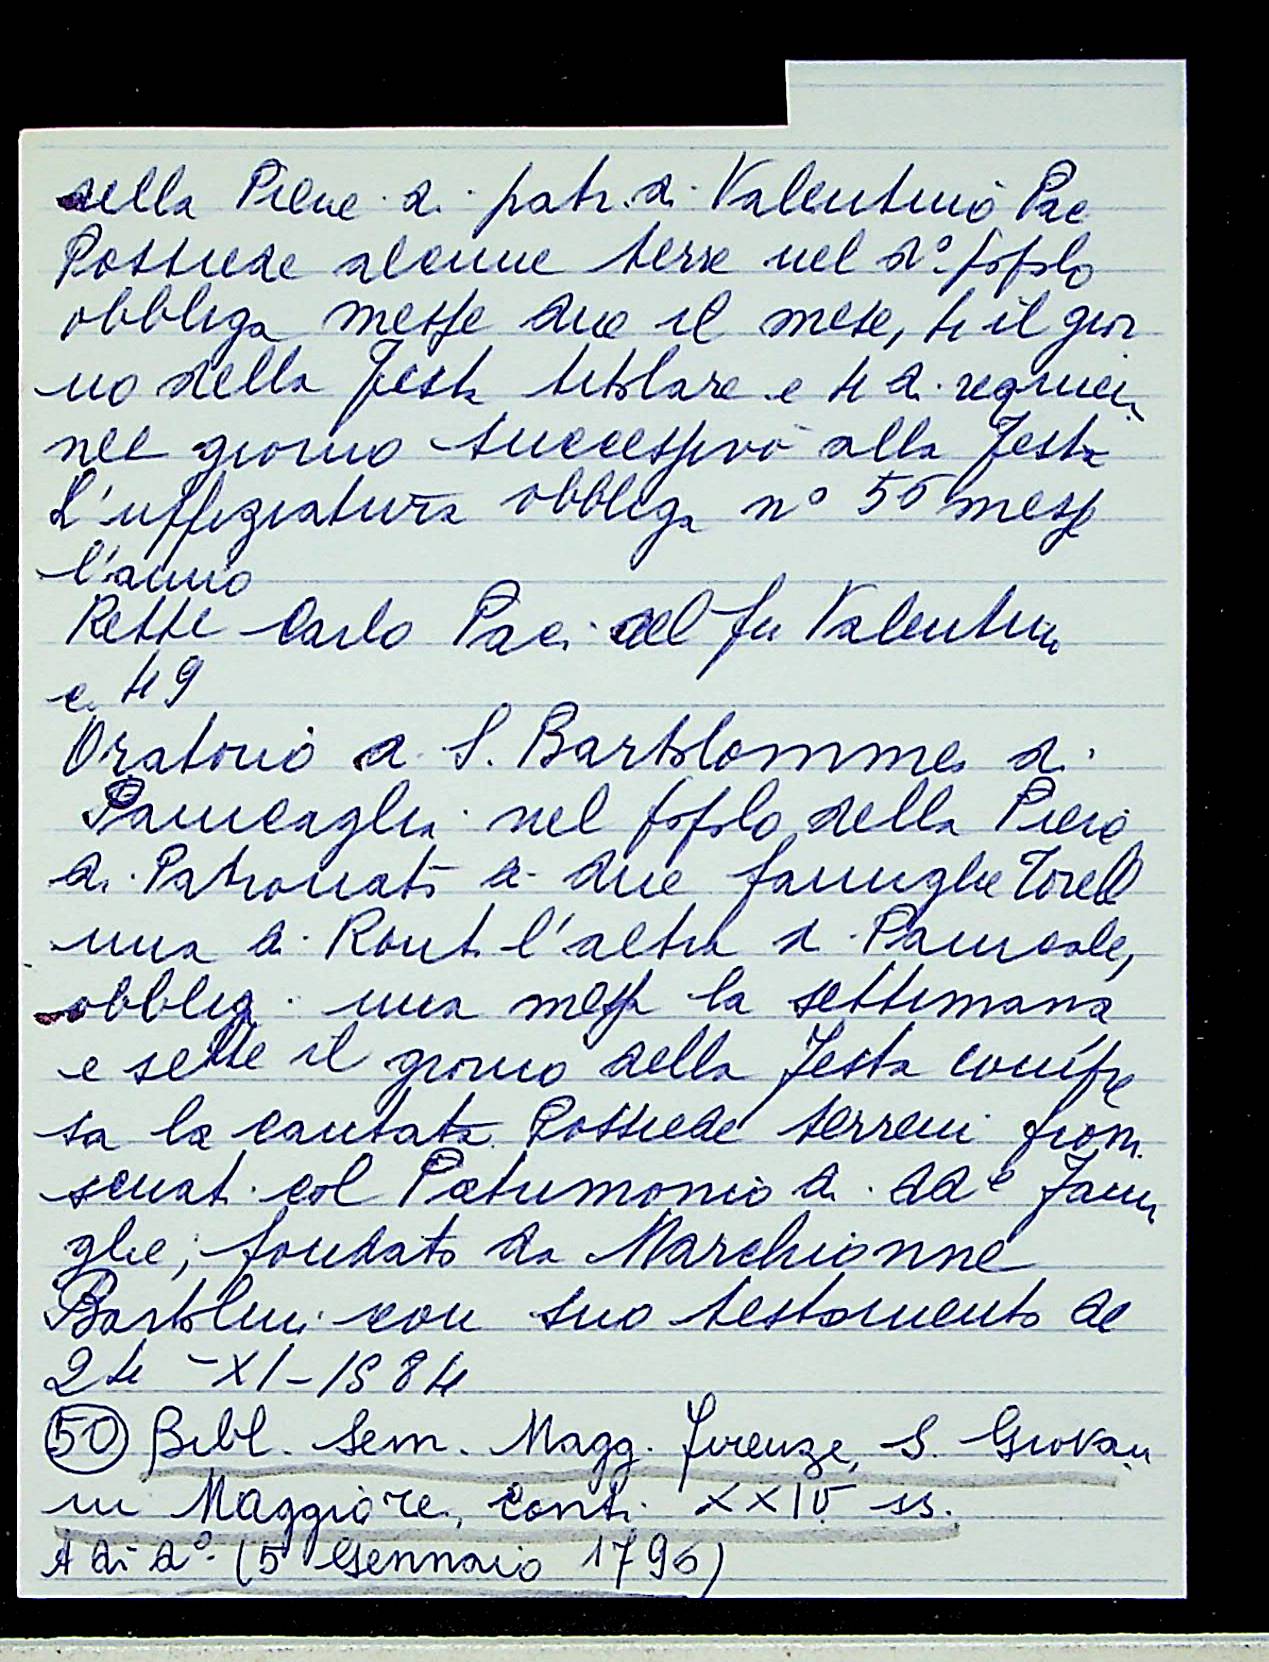 della Pieve di patr. di Valentino Pac
Possiede alcune terre nel dº popolo
obbliga messe due il mese, 4 il gior
no della festa titolare e 4 di requiem
nel giorno successivo alla festa
L'uffiziatura obbliga nº 50 messe
l'anno
Rette Carlo Paci del fu Valentin
c. 49
Oratorio di S. Bartolommeo di
Pannicaglia nel popolo della Pieve
di Patronato di due famiglie Torell
una di Ronta l'altra di Pannicale,
obblig. una messa la settimana
e sette il giorno della festa compre
sa la cantata Possiede terreni prom
scuati col Patrimonio di dde fami
glie, fondato da Marchionne
Bartolini con suo testamento de
24 - XI - 1584
50 Bibl. Sem. Magg. Firenze, S. Giovan
ni Maggiore, Conti XXIV ss.
A dì dº (5 Gennaio 1796)